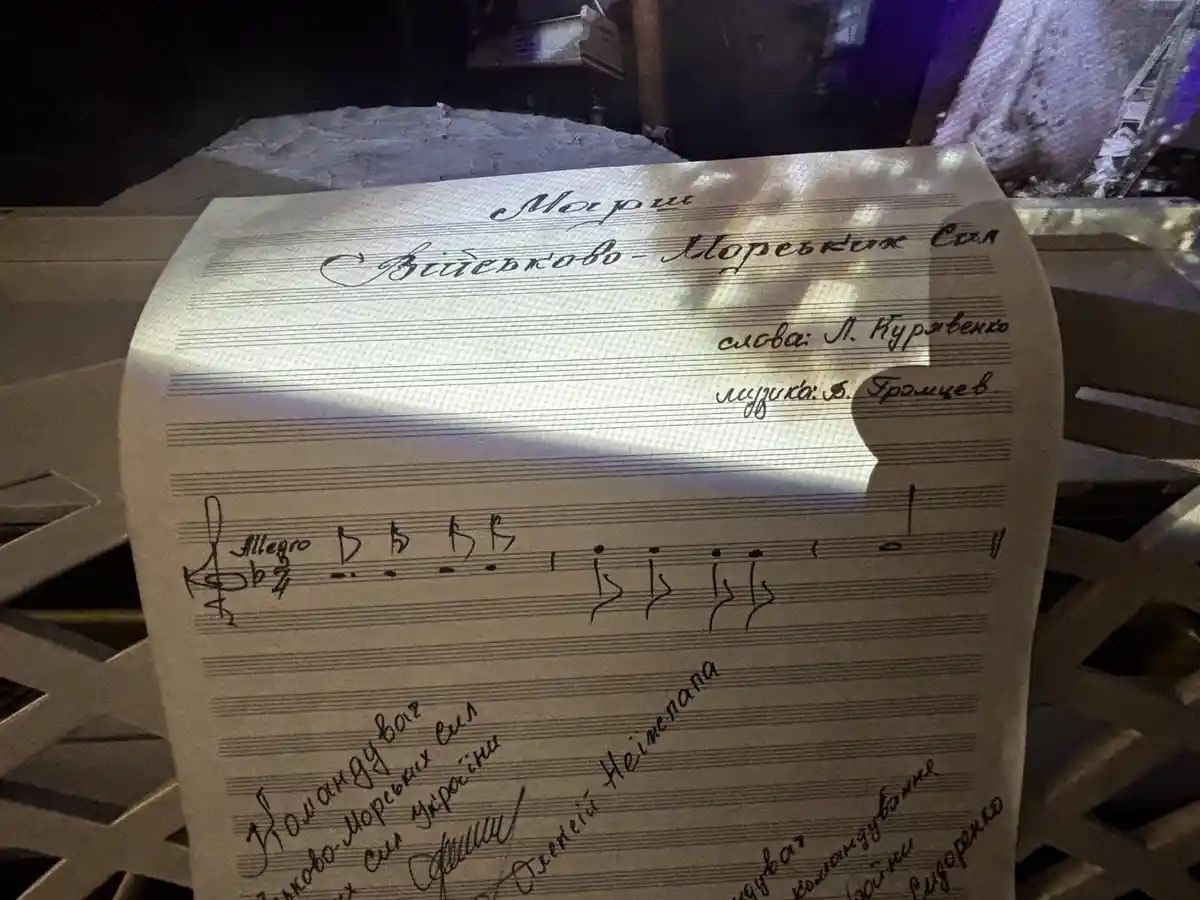 Марш
Військово-Морських Сил
слова: Л. Курявенко
музика: В. Громцев
Allegro
Командувач
Військово-Морських Сил
Сил україни
Олексій Неїжпапа
командування
Сидоренко